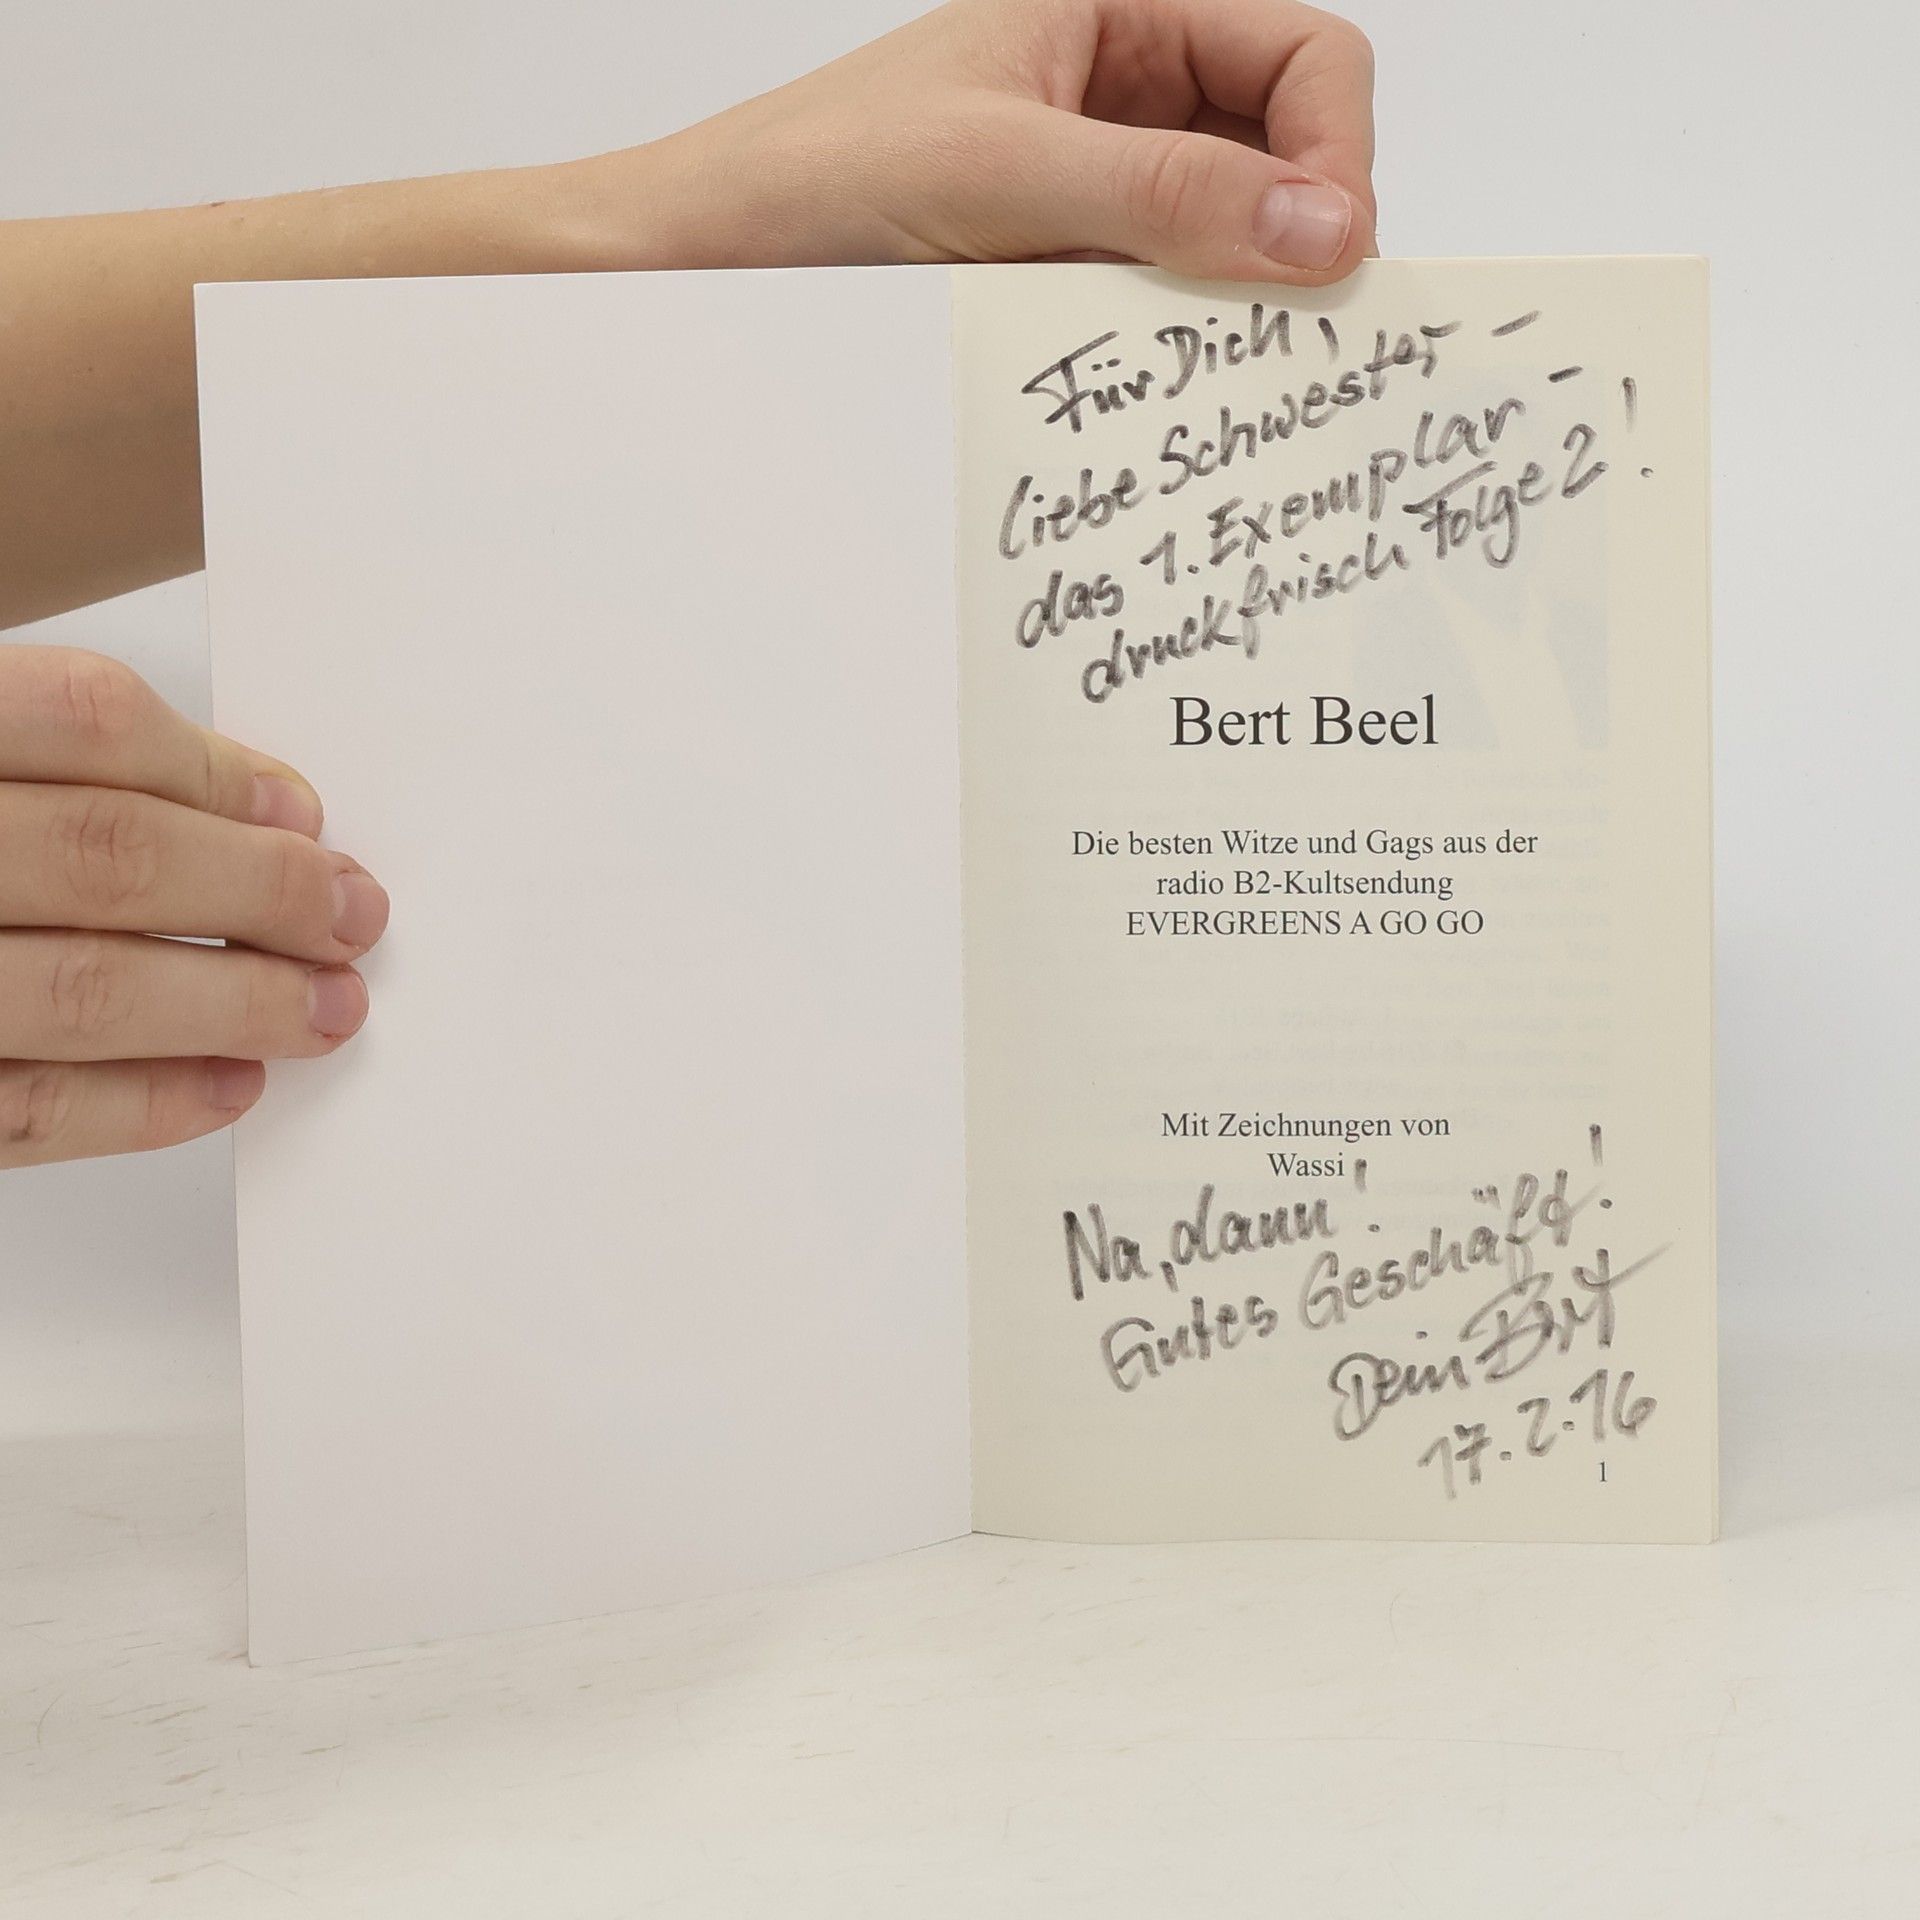 Für Dich,
liebe Schwester -
das 1. Exemplar -
druckfrisch Folge 2!
Bert Beel
Die besten Witze und Gags aus der
radio B2-Kultsendung
EVERGREENS A GO GO
Mit Zeichnungen von
Wassi
Na, dann!
Gutes Geschäft!
Dein Bert
17.2.16
1